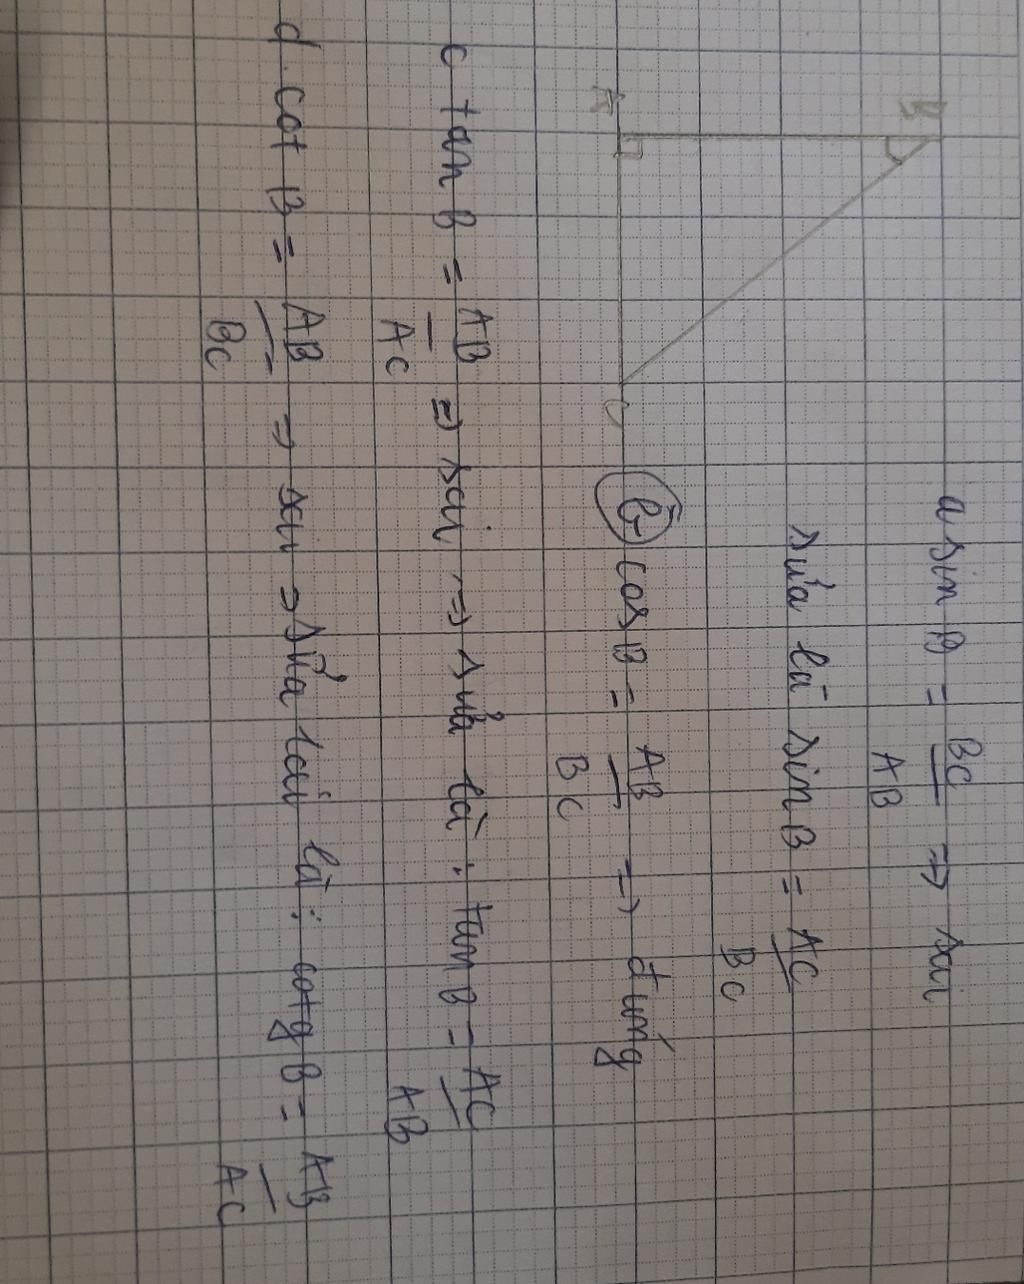 B
A
C
a sin B = BC/AB => sai
sửa là sin B = AC/BC
b cos B = AB/BC => đúng
c tan B = AB/AC => sai => sửa là : tan B = AC/AB
d. cot B = AB/BC => sai => sửa lại là : cotg B = AB/AC